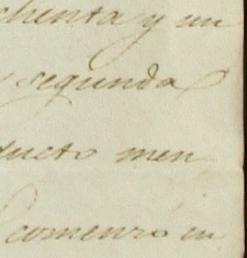 chenta y un
segunda
ducto men
comenzo en